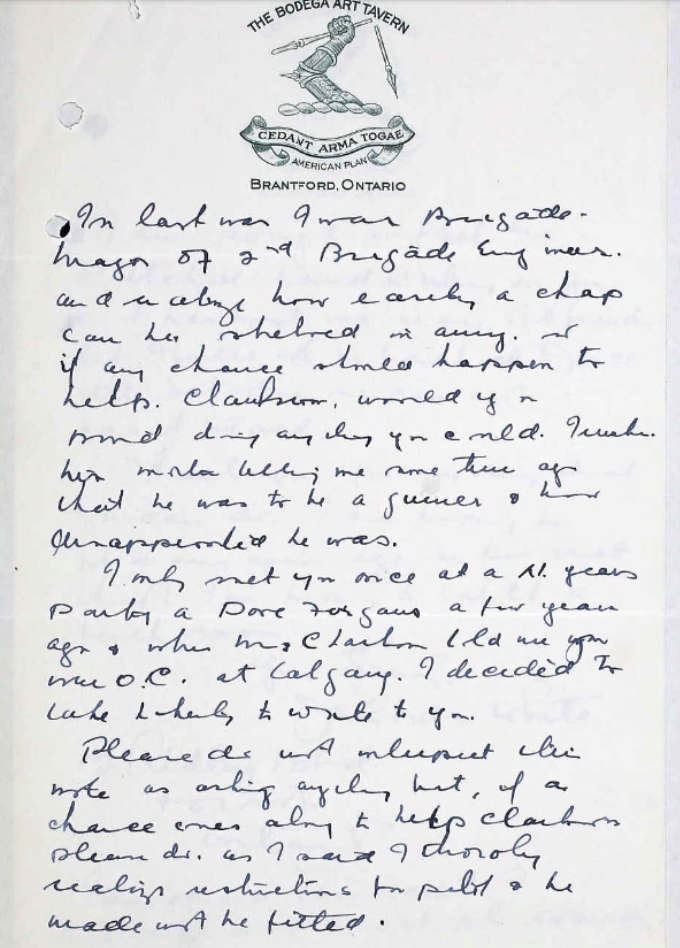 THE BODEGA ART TAVERN
CEDANT ARMA TOGAE
AMERICAN PLAN
BRANTFORD, ONTARIO
In last war I was Brigade-
Major of 2nd Brigade Engineers.
and realize how easily a chap
can be shelved in army. so
if any chance should happen to
help. Clarkson, would you
mind doing anything you could.
his mother telling me some time ago
that he was to be a gunner & how
disappointed he was.
I only met you once at a N. years
party a Dove a few years
ago & when Mrs Clarkson told me you
were O.C. at Calgary. I decided to
take liberty to write to you.
Please do not interpret this
note as asking anything but, if a
chance comes along to help Clarkson
please do. as I said I thoroly
realize restrictions for pilot & he
made not be fitted.